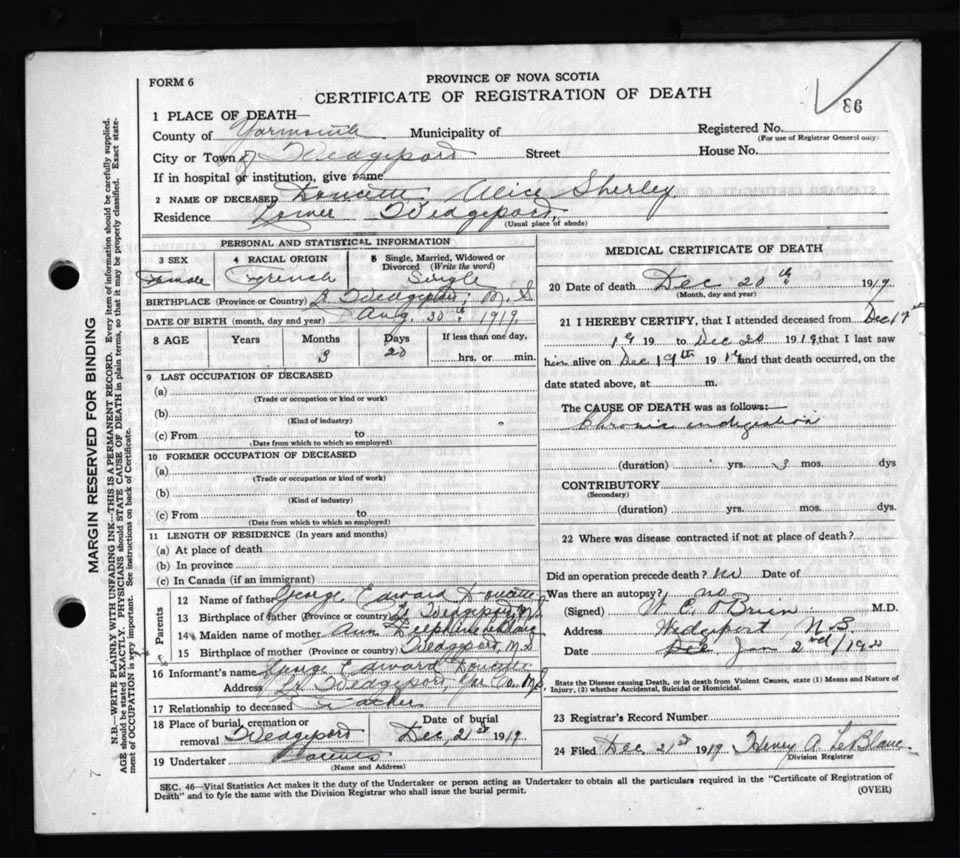 PROVINCE OF NOVA SCOTIA
FORM 6
CERTIFICATE OF REGISTRATION OF DEATH
86
1 PLACE OF DEATH—
County of Yarmouth Municipality of
Registered No.
(For use of Registrar General only)
City or Town of Wedgeport Street House No.
If in hospital or institution, give name
2 NAME OF DECEASED Doucette Alice Sherley
Residence Lower Wedgeport,
(Usual place of abode)
PERSONAL AND STATISTICAL INFORMATION
3 SEX Female
4 RACIAL ORIGIN French
5 Single, Married, Widowed or Divorced (Write the word) Single
BIRTHPLACE (Province or Country) L. Wedgeport, N.S.
DATE OF BIRTH (month, day and year) Aug. 30th 1919
8 AGE Years Months Days If less than one day,
3 20 hrs. or min.
9 LAST OCCUPATION OF DECEASED
(a)
(Trade or occupation or kind or work)
(b)
(Kind of industry)
(c) From to
(Date from which to which so employed)
10 FORMER OCCUPATION OF DECEASED
(a)
(Trade or occupation or kind of work)
(b)
(Kind of industry)
(c) From to
(Date from which to which so employed)
11 LENGTH OF RESIDENCE (In years and months)
(a) At place of death
(b) In province
(c) In Canada (if an immigrant)
Parents
12 Name of father George Edward Doucette
13 Birthplace of father (Province or country) L. Wedgeport, N.S.
14 Maiden name of mother Ann LeBlanc
15 Birthplace of mother (Province or country) Wedgeport, N.S.
16 Informant's name George Edward Doucette
Address Lr. Wedgeport, Yar Co. N.S.
17 Relationship to deceased Father
18 Place of burial, cremation or removal Wedgeport
Date of burial Dec, 21st 1919
19 Undertaker
(Name and Address)
MEDICAL CERTIFICATE OF DEATH
20 Date of death Dec 20th 1919
(Month, day and year)
21 I HEREBY CERTIFY, that I attended deceased from Dec 19th
1919 to Dec 20 1919, that I last saw
him alive on Dec 19th 1919 and that death occurred, on the
date stated above, at m.
The CAUSE OF DEATH was as follows:
Chronic indigestion
(duration) yrs. 3 mos. dys
CONTRIBUTORY
(Secondary)
(duration) yrs. mos. dys.
22 Where was disease contracted if not at place of death?
Did an operation precede death? No Date of
Was there an autopsy? no
(Signed) W. E. O'Brien M.D.
Address Wedgeport N.S
Date Dec Jan 2nd/1920
State the Disease causing Death, or in death from Violent Causes, state (1) Means and Nature of
Injury, (2) whether Accidental, Suicidal or Homicidal.
23 Registrar's Record Number
24 Filed Dec. 21st 1919 Henry A. LeBlanc
Division Registrar
SEC. 46—Vital Statistics Act makes it the duty of the Undertaker or person acting as Undertaker to obtain all the particulars required in the "Certificate of Registration of
Death" and to fyle the same with the Division Registrar who shall issue the burial permit.
(OVER)
MARGIN RESERVED FOR BINDING
N.B.—WRITE PLAINLY WITH UNFADING INK—THIS IS A PERMANENT RECORD. Every item of information should be carefully supplied.
AGE should be stated EXACTLY. PHYSICIANS should STATE CAUSE OF DEATH in plain terms, so that it may be properly classified. Exact state-
ment of OCCUPATION is very important. See instructions on back of Certificate.